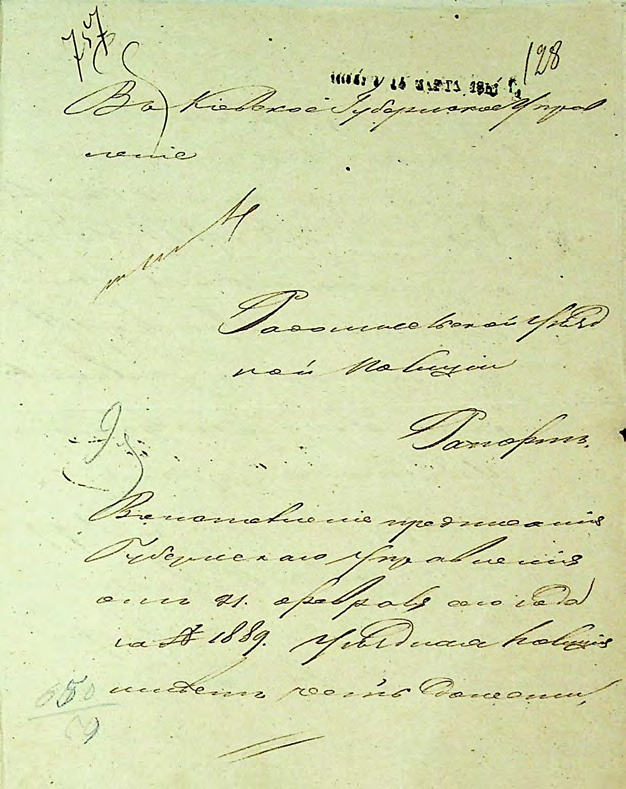 757
128
14 МАРТА
Въ Кіевское Губернское Управ
леніе
Радомысльской Уѣзд
ной Полиціи
Рапортъ.
Во исполненіе предписанія
Губернскаго Управленія
отъ 21. февраля сего года
за № 1889. Уѣздная Полиція
имѣетъ честь донести,
650